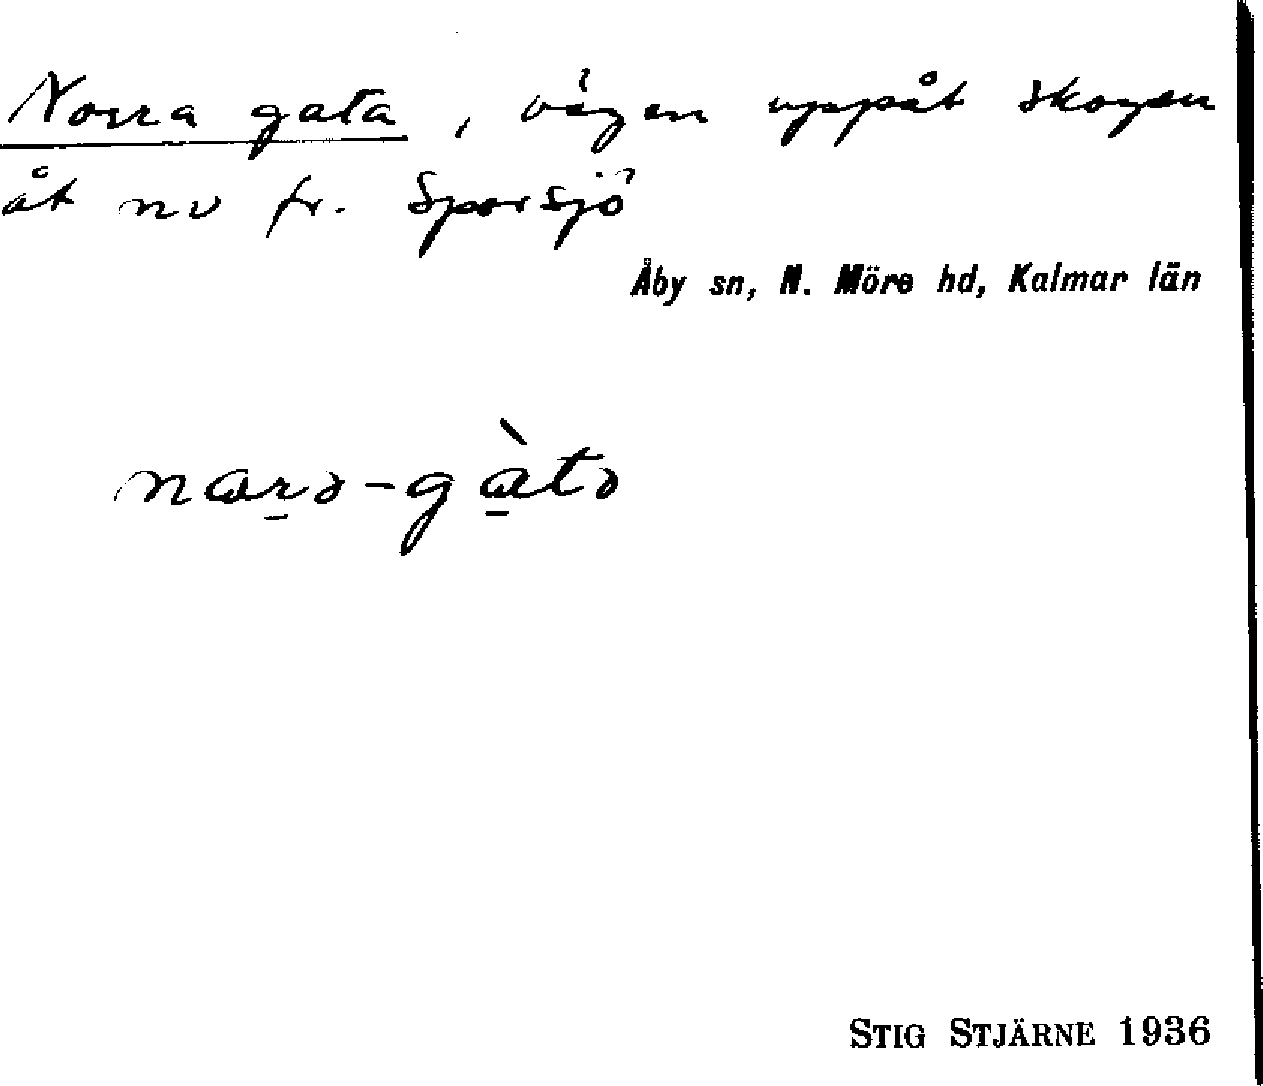 Norra gata, vägen uppåt skogen
åt nv fr. Sporsjö
Åby sn, N. Möre hd, Kalmar län
STIG STJÄRNE 1936